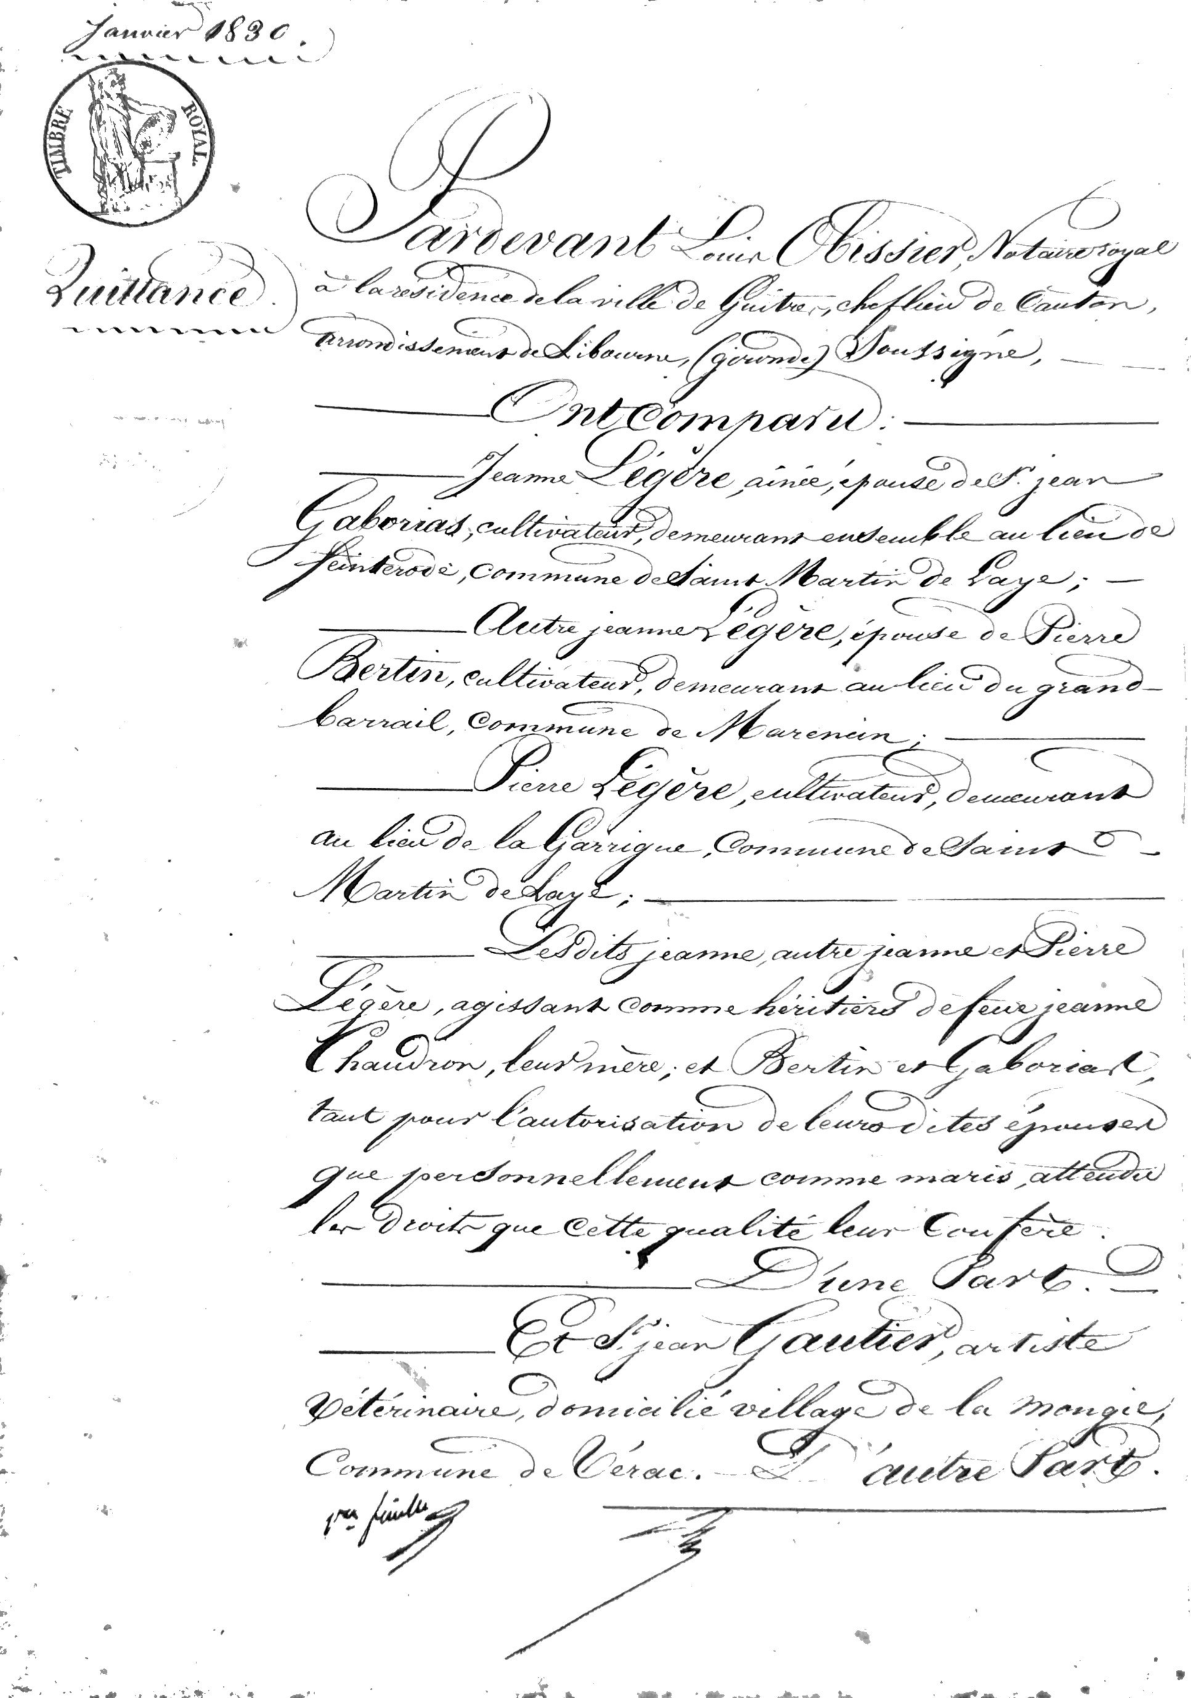 Janvier 1830.
TIMBRE ROYAL
Quittance.
Pardevant Louis Obissier, Notaire royal
à la résidence de la ville de Guitres, chef lieu de Canton,
arrondissement de Libourne, (gironde) Soussigné,
Ont Comparu:
Jeanne Légère, ainée, épouse de Sr. jean
Gaborias, cultivateur, demeurant ensemble au lieu de
commune de Saint Martin de Laye;
Autre jeanne Légère, épouse de Pierre
Bertin, cultivateur, demeurant au lieu du grand-
barrail, Commune de Marencin;
Pierre Légère, cultivateur, demeurant
au lieu de la Garrigue, Commune de Saint
Martin de Laye;
Lesdits jeanne, autre jeanne et Pierre
Légère, agissant comme héritiers de feue jeanne
Chaudron, leur mère; et Bertin et Gaboriast,
tant pour l'autorisation de leurs dites épouses
que personnellement comme maris, attendu
les droits que cette qualité leur Confère.
D'une Part.
Et Sr. jean Gautier, artiste
Vétérinaire, domicilié village de la mongie,
Commune de Vérac. D'autre Part.
1ère feuille